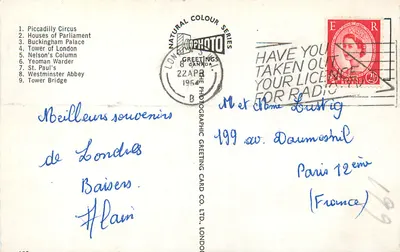 1. Piccadilly Circus
2. Houses of Parliament
3. Buckingham Palace
4. Tower of London
5. Nelson's Column
6. Yeoman Warder
7. St. Paul's
8. Westminster Abbey
9. Tower Bridge
Meilleurs souvenirs
de Londres
Baisers
Alain
NATURAL COLOUR SERIES
PHOTO
GREETINGS
THE PHOTOGRAPHIC GREETING CARD CO. LTD. LONDON
LONDON
22 APR
1964
B
HAVE YOU
TAKEN OUT
YOUR LICENCE
FOR RADIO
E R
M et Mme Lustig
199 av. Daumesnil
Paris 12ème
(France)
199